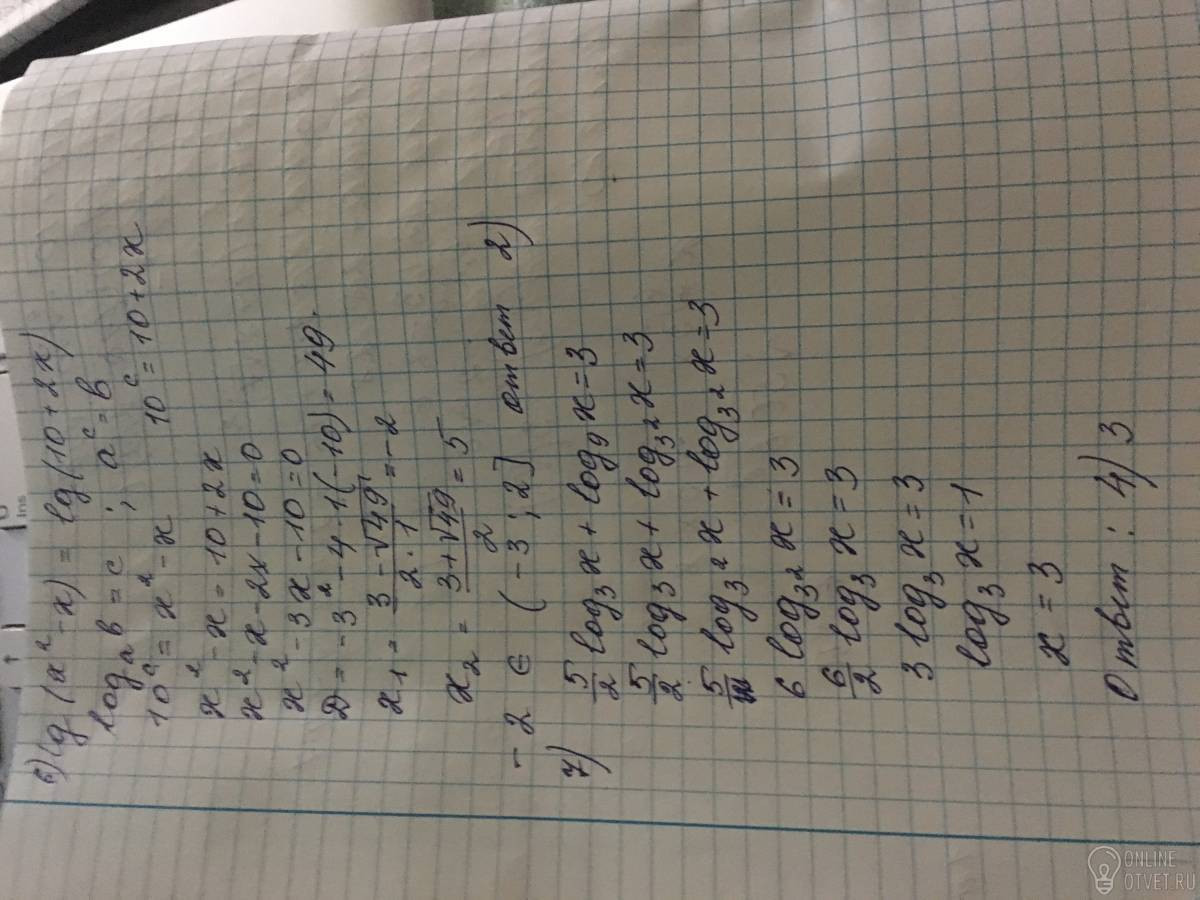 6) lg (x² - x) = lg (10 + 2x)
log_a b = c ; a^c = b
10^c = x² - x 10^c = 10 + 2x
x² - x = 10 + 2x
x² - x - 2x - 10 = 0
x² - 3x - 10 = 0
D = -3² - 4 · 1(-10) = 49.
x₁ = (3 - √49)/(2 · 1) = -2
x₂ = (3 + √49)/2 = 5
-2 ∈ (-3 ; 2] ответ 2)
7) 5/2 log₃ x + log₉ x = 3
5/2 log₃ x + log_3² x = 3
5 log_3² x + log_3² x = 3
6 log_3² x = 3
6/2 log₃ x = 3
3 log₃ x = 3
log₃ x = 1
x = 3
Ответ : 4) 3
Ins
ONLINE
OTVET.RU